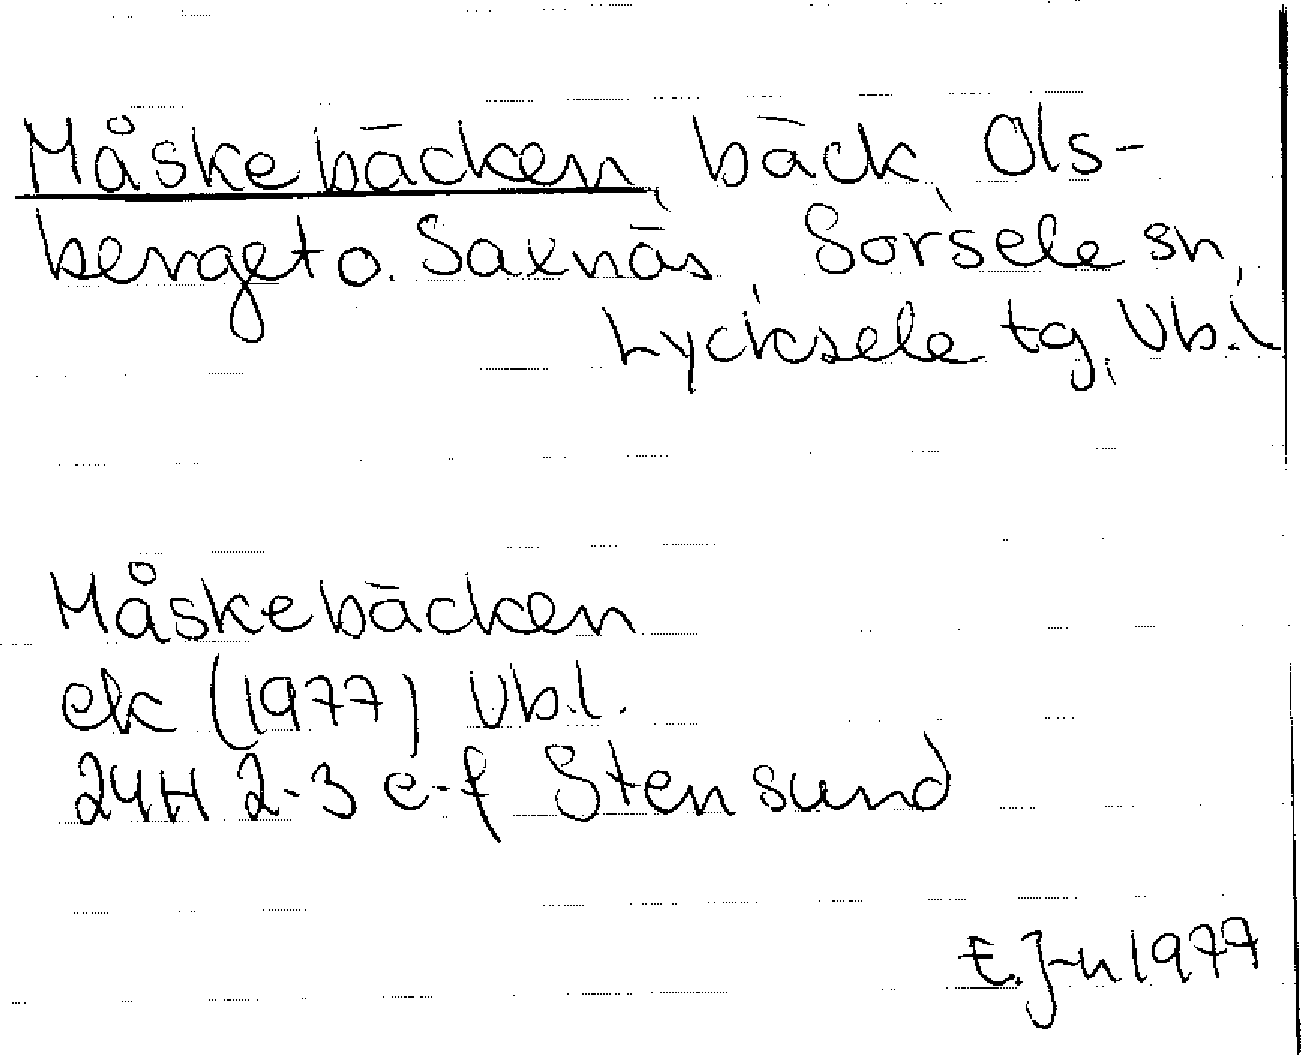 Måskebäcken, bäck, Ols-
berget o. Saxnäs, Sorsele sn,
Lycksele tg, Vb.l
Måskebäcken
ek (1977) Vb.l.
24H 2-3 e-f Stensund
E. J-n 1977